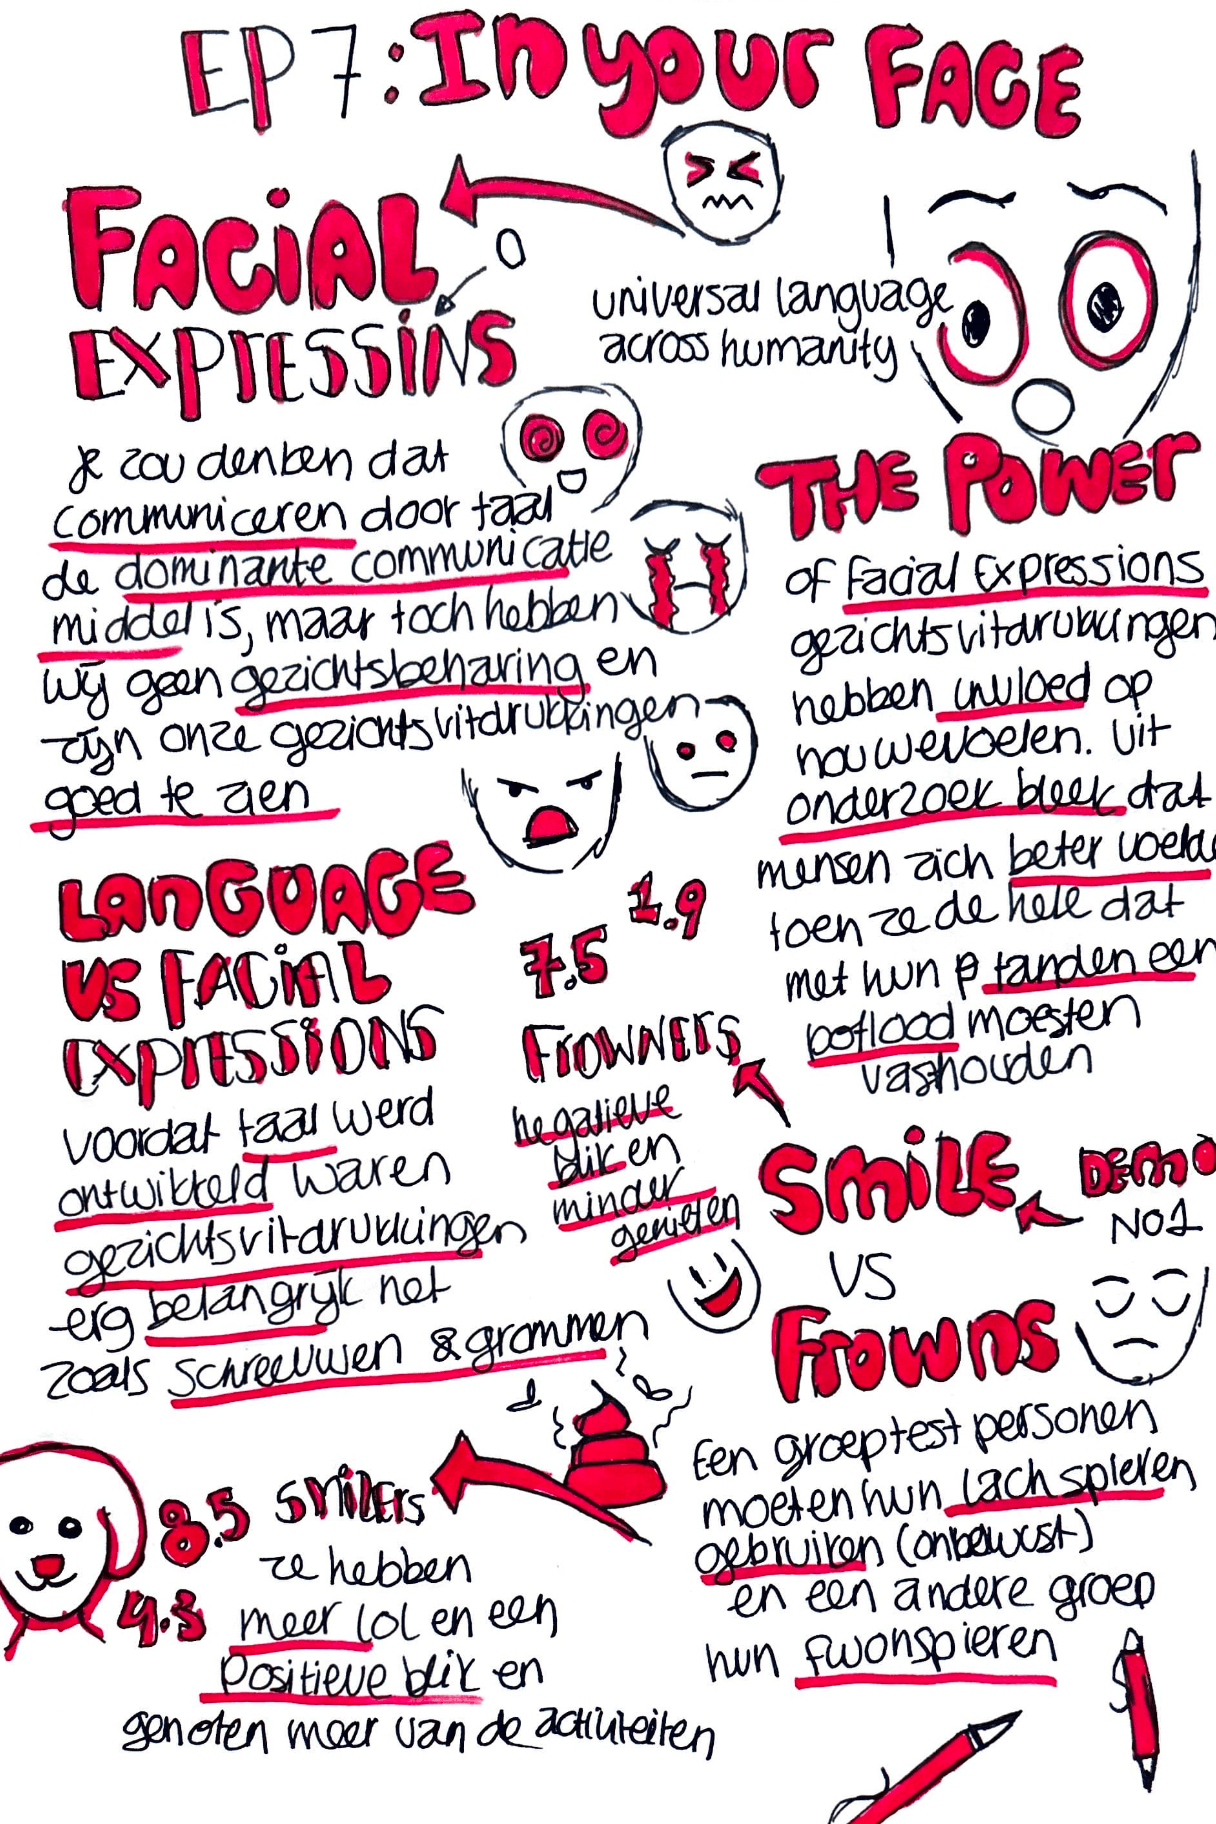 EP 7: In your FACE
FACiAL
EXPrESSiNS
O
universal language
across humanity
je zou denken dat
communiceren door taal
de dominante communicatie
middel is, maar toch hebben
wij geen gezichtsbeharing en
zijn onze gezichtsuitdrukkingen
goed te zien
THE POWEr
of Facial Expressions
gezichtsuitdrukkingen
hebben invloed op
hou we voelen. Uit
onderzoek bleek dat
mensen zich beter voelde
toen ze de hele dat
met hun p tanden een
potlood moesten
vashouden
LAnGUAGE
VS FACiAL
EXPrESSiONS
voordat taal werd
ontwikkeld waren
gezichtsuitdrukkingen
erg belangrijk net
zoals schreeuwen & grommen
7.5 1.9
FrOWNErS
negatieve
blik en
minder
genieten
SMiLE
VS
FrOWnS
DEMO
NO1
Een groep test personen
moeten hun lach spieren
gebruiken (onbewust)
en een andere groep
hun fwonspieren
8.5 SMiLErs
4.3
ze hebben
meer lol en een
positieve blik en
genoten meer van de activiteiten